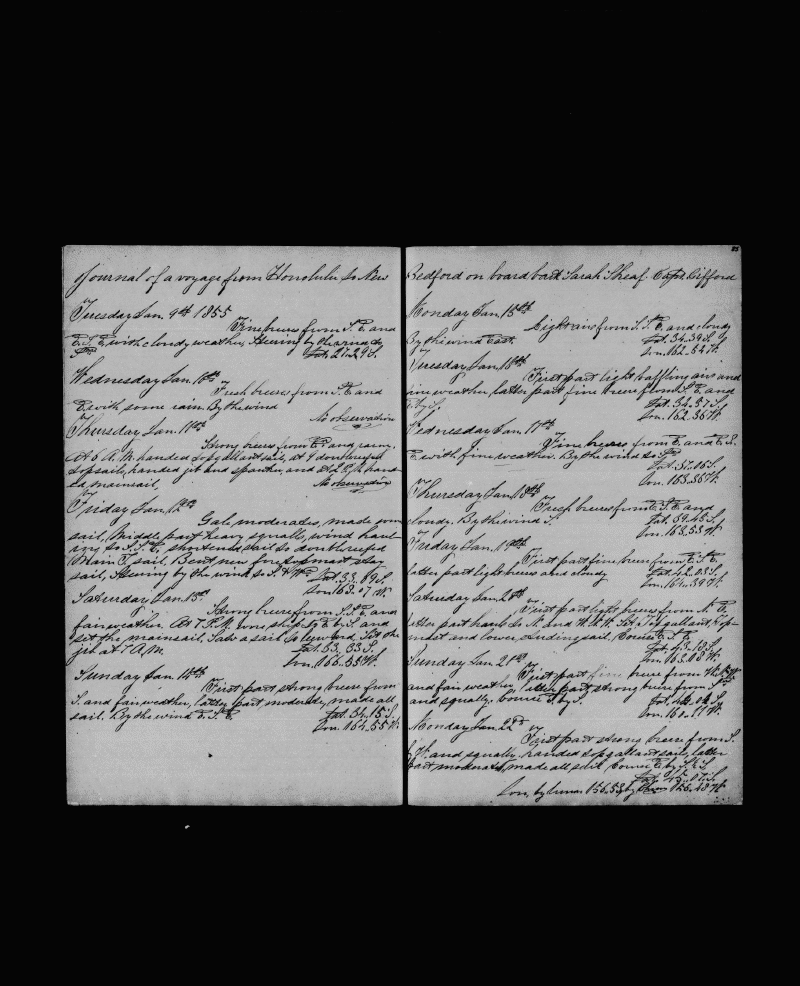 Journal of a voyage from Honolulu to New
Tuesday Jan. 9th 1855
Fine breeze from S. E. and
E.S.E. with cloudy weather, Steering by the wind to
Lat. 27.29 S.
Wednesday Jan. 10th
Fresh breeze from S. E. and
E. with some rain. By the wind
No observation
Thursday Jan. 11th
Strong breeze from E. and rain,
At 6 A.M. handed topgallant sail, at 9 double reefed
topsails, handed jib and spanker, and at 2 P.M. hand-
ed mainsail,
No observation
Friday Jan. 12th
Gale, moderates, made some
sail, Middle part heavy squalls, wind haul-
ing to S.S.E. shortened sail to double reefed
Main T. sail. Bent new fore topmast stay
sail, Steering by the wind to S. & W.
Lat. 33.09 S.
Lon. 163.07 W.
Saturday Jan. 13th
Strong breeze from S.S.E. and
fair weather. At 7 P.M. wore ship to E. by S. and
set the mainsail. Saw a sail to leeward, Set the
jib at 7 A.M.
Lat. 33.33 S.
Lon. 166.35 W.
Sunday Jan 14th
First part strong breeze from
S. and fair weather, latter part moderate, made all
sail. By the wind E.S.E.
Lat. 34.15 S.
Lon. 164.55 W.
Bedford on board bark Sarah Sheaf. Capt. Gifford
85
Monday Jan. 15th
Light airs from S.S.E. and cloudy
By the wind East.
Lat. 34.39 S.
Lon. 162.52 W.
Tuesday Jan. 16th
First part light baffling airs and
fine weather, latter part fine breeze from S. E. and
E. by S.
Lat. 34.57 S.
Lon. 162.36 W.
Wednesday Jan. 17th
Fine breeze from E. and E.S.
E. with fine weather. By the wind to S.
Lat. 37.06 S.
Lon. 163.36 W.
Thursday Jan. 18th
Fresh breeze from E.S.E. and
cloudy. By the wind S.
Lat. 39.45 S.
Lon. 163.53 W.
Friday Jan. 19th
First part fine breeze from E.S.E.
latter part light breeze and cloudy
Lat. 42.03 S.
Lon. 164.39 W.
Saturday Jan. 20th
First part light breeze from N. E.
latter part hauls to N. and W.N.W. Set Topgallant, Top-
mast and lower studding sail. Course E.S.E.
Lat. 43.18 S.
Lon. 163.08 W.
Sunday Jan. 21st
First part fine breeze from W.N.W.
and fair weather, latter part strong breeze from S.
and squally, course E. by S.
Lat. 44.02 S.
Lon. 160.11 W.
Monday Jan. 22d
First part strong breeze from S.
S.W. and squally, handed topgallant sails, latter
part moderate, made all sail. Course E. by S. ½ S.
Lat. 45.07 S.
Lon. by lunar 156.53, by Chron 156.48 W.